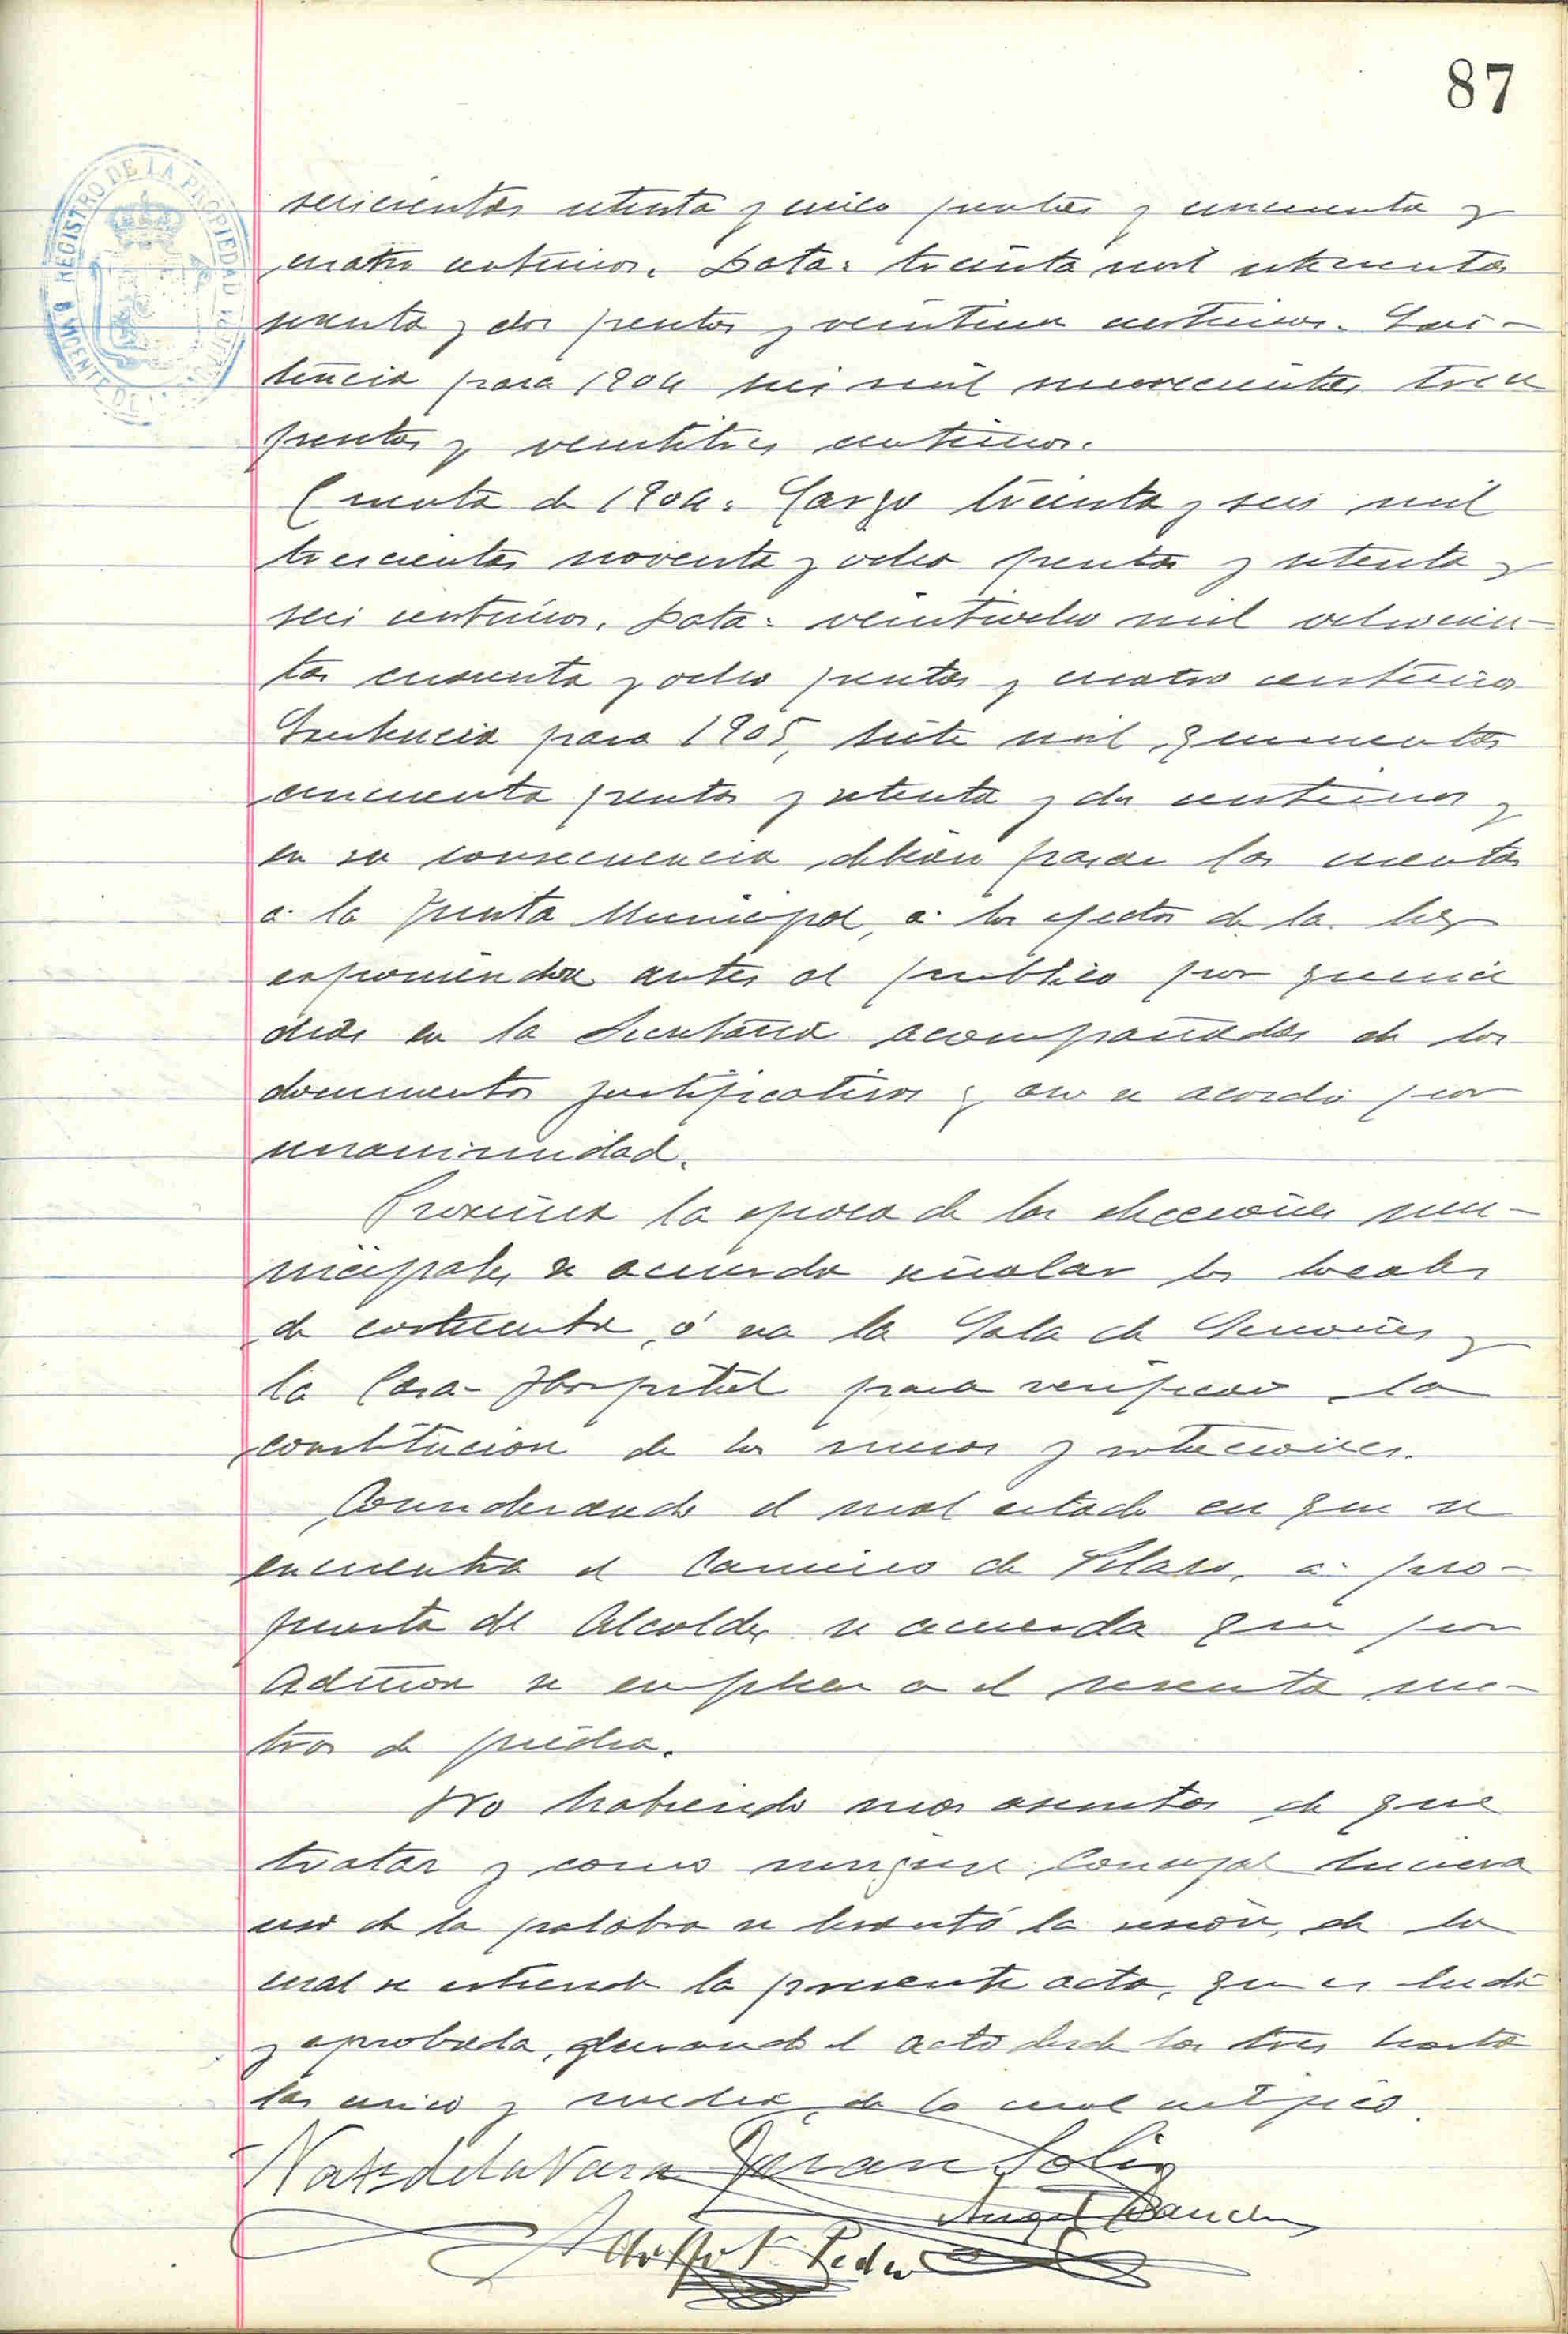 87
REGISTRO DE LA PROPIEDAD
seiscientas setenta y cinco pesetas y cincuenta y
cuatro centimos. Data: treinta mil setecientas
sesenta y dos pesetas y veintiun centimos. Exis-
tencia para 1904 seis mil novecientas trece
pesetas y veintitres centimos.
Cuenta de 1904. Cargo treinta y seis mil
trescientas noventa y ocho pesetas y setenta y
seis centimos. Data: veintiocho mil ochocien-
tas cuarenta y ocho pesetas y cuatro centimos
Existencia para 1905, siete mil quinientas
cincuenta pesetas y setenta y dos centimos y
en su consecuencia debian pasar las cuentas
a la Junta Municipal, a los efectos de la ley
exponiendose antes al publico por quince
dias en la Secretaria acompañadas de los
documentos justificativos y asi se acordó por
unanimidad.
Proxima la epoca de las elecciones mu-
nicipales se acuerda señalar los locales
de costumbre, ó sea la Sala de Sesiones y
la Casa-Hospital para verificar la
constitucion de las mesas y votaciones.
Considerando el mal estado en que se
encuentra el Camino de a pro-
puesta del Alcalde, se acuerda que por
Admon se empleen en el sesenta me-
tros de piedra.
No habiendo mas asuntos de que
tratar y como ningun Concejal hiciera
uso de la palabra se levantó la sesión, de la
cual se extiende la presente acta, que es leida
y aprobada, durando el acto desde las tres hasta
las cinco y media, de lo cual certifico.
de la Vara Juan Solis
Angel Sanchez
Adolfo Pedro